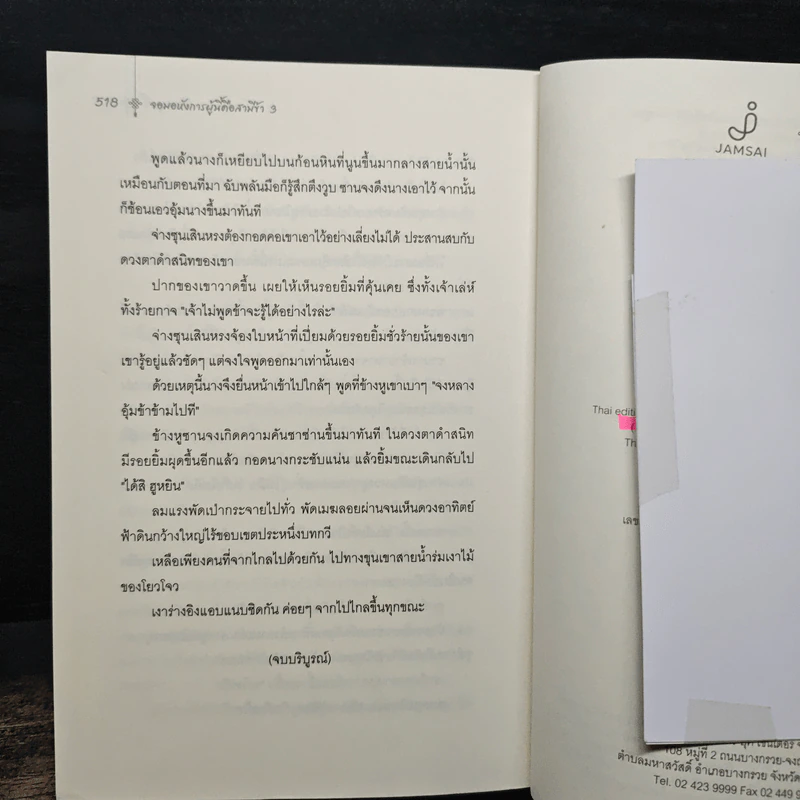 518 จอมอหังการผู้นี้คือสามีข้า 3
พูดแล้วนางก็เหยียบไปบนก้อนหินที่นูนขึ้นมากลางสายน้ำนั้น
เหมือนกับตอนที่มา ฉับพลันมือก็รู้สึกตึงวูบ ซานจงดึงนางเอาไว้ จากนั้น
ก็ช้อนเอวอุ้มนางขึ้นมาทันที
จ่างซุนเสินหรงต้องกอดคอเขาเอาไว้อย่างเลี่ยงไม่ได้ ประสานสบกับ
ดวงตาดำสนิทของเขา
ปากของเขาวาดขึ้น เผยให้เห็นรอยยิ้มที่คุ้นเคย ซึ่งทั้งเจ้าเล่ห์
ทั้งร้ายกาจ "เจ้าไม่พูดข้าจะรู้ได้อย่างไรล่ะ"
จ่างซุนเสินหรงจ้องใบหน้าที่เปี่ยมด้วยรอยยิ้มชั่วร้ายนั้นของเขา
เขารู้อยู่แล้วชัดๆ แต่จงใจพูดออกมาเท่านั้นเอง
ด้วยเหตุนี้นางจึงยื่นหน้าเข้าไปใกล้ๆ พูดที่ข้างหูเขาเบาๆ "จงหลาง
อุ้มข้าข้ามไปที"
ข้างหูซานจงเกิดความคันซาซ่านขึ้นมาทันที ในดวงตาดำสนิท
มีรอยยิ้มผุดขึ้นอีกแล้ว กอดนางกระชับแน่น แล้วยิ้มขณะเดินกลับไป
"ได้สิ ฮูหยิน"
ลมแรงพัดเป่ากระจายไปทั่ว พัดเมฆลอยผ่านจนเห็นดวงอาทิตย์
ฟ้าดินกว้างใหญ่ไร้ขอบเขตประหนึ่งบทกวี
เหลือเพียงคนที่จากไกลไปด้วยกัน ไปทางขุนเขาสายน้ำร่มเงาไม้
ของโยวโจว
เงาร่างอิงแอบแนบชิดกัน ค่อยๆ จากไปไกลขึ้นทุกขณะ
(จบบริบูรณ์)
JAMSAI
Thai editi
Th
เลข
108 หมู่ที่ 2 ถนนบางกรวย-จง
ตำบลมหาสวัสดิ์ อำเภอบางกรวย จังหวัด
Tel. 02 423 9999 Fax 02 449 9